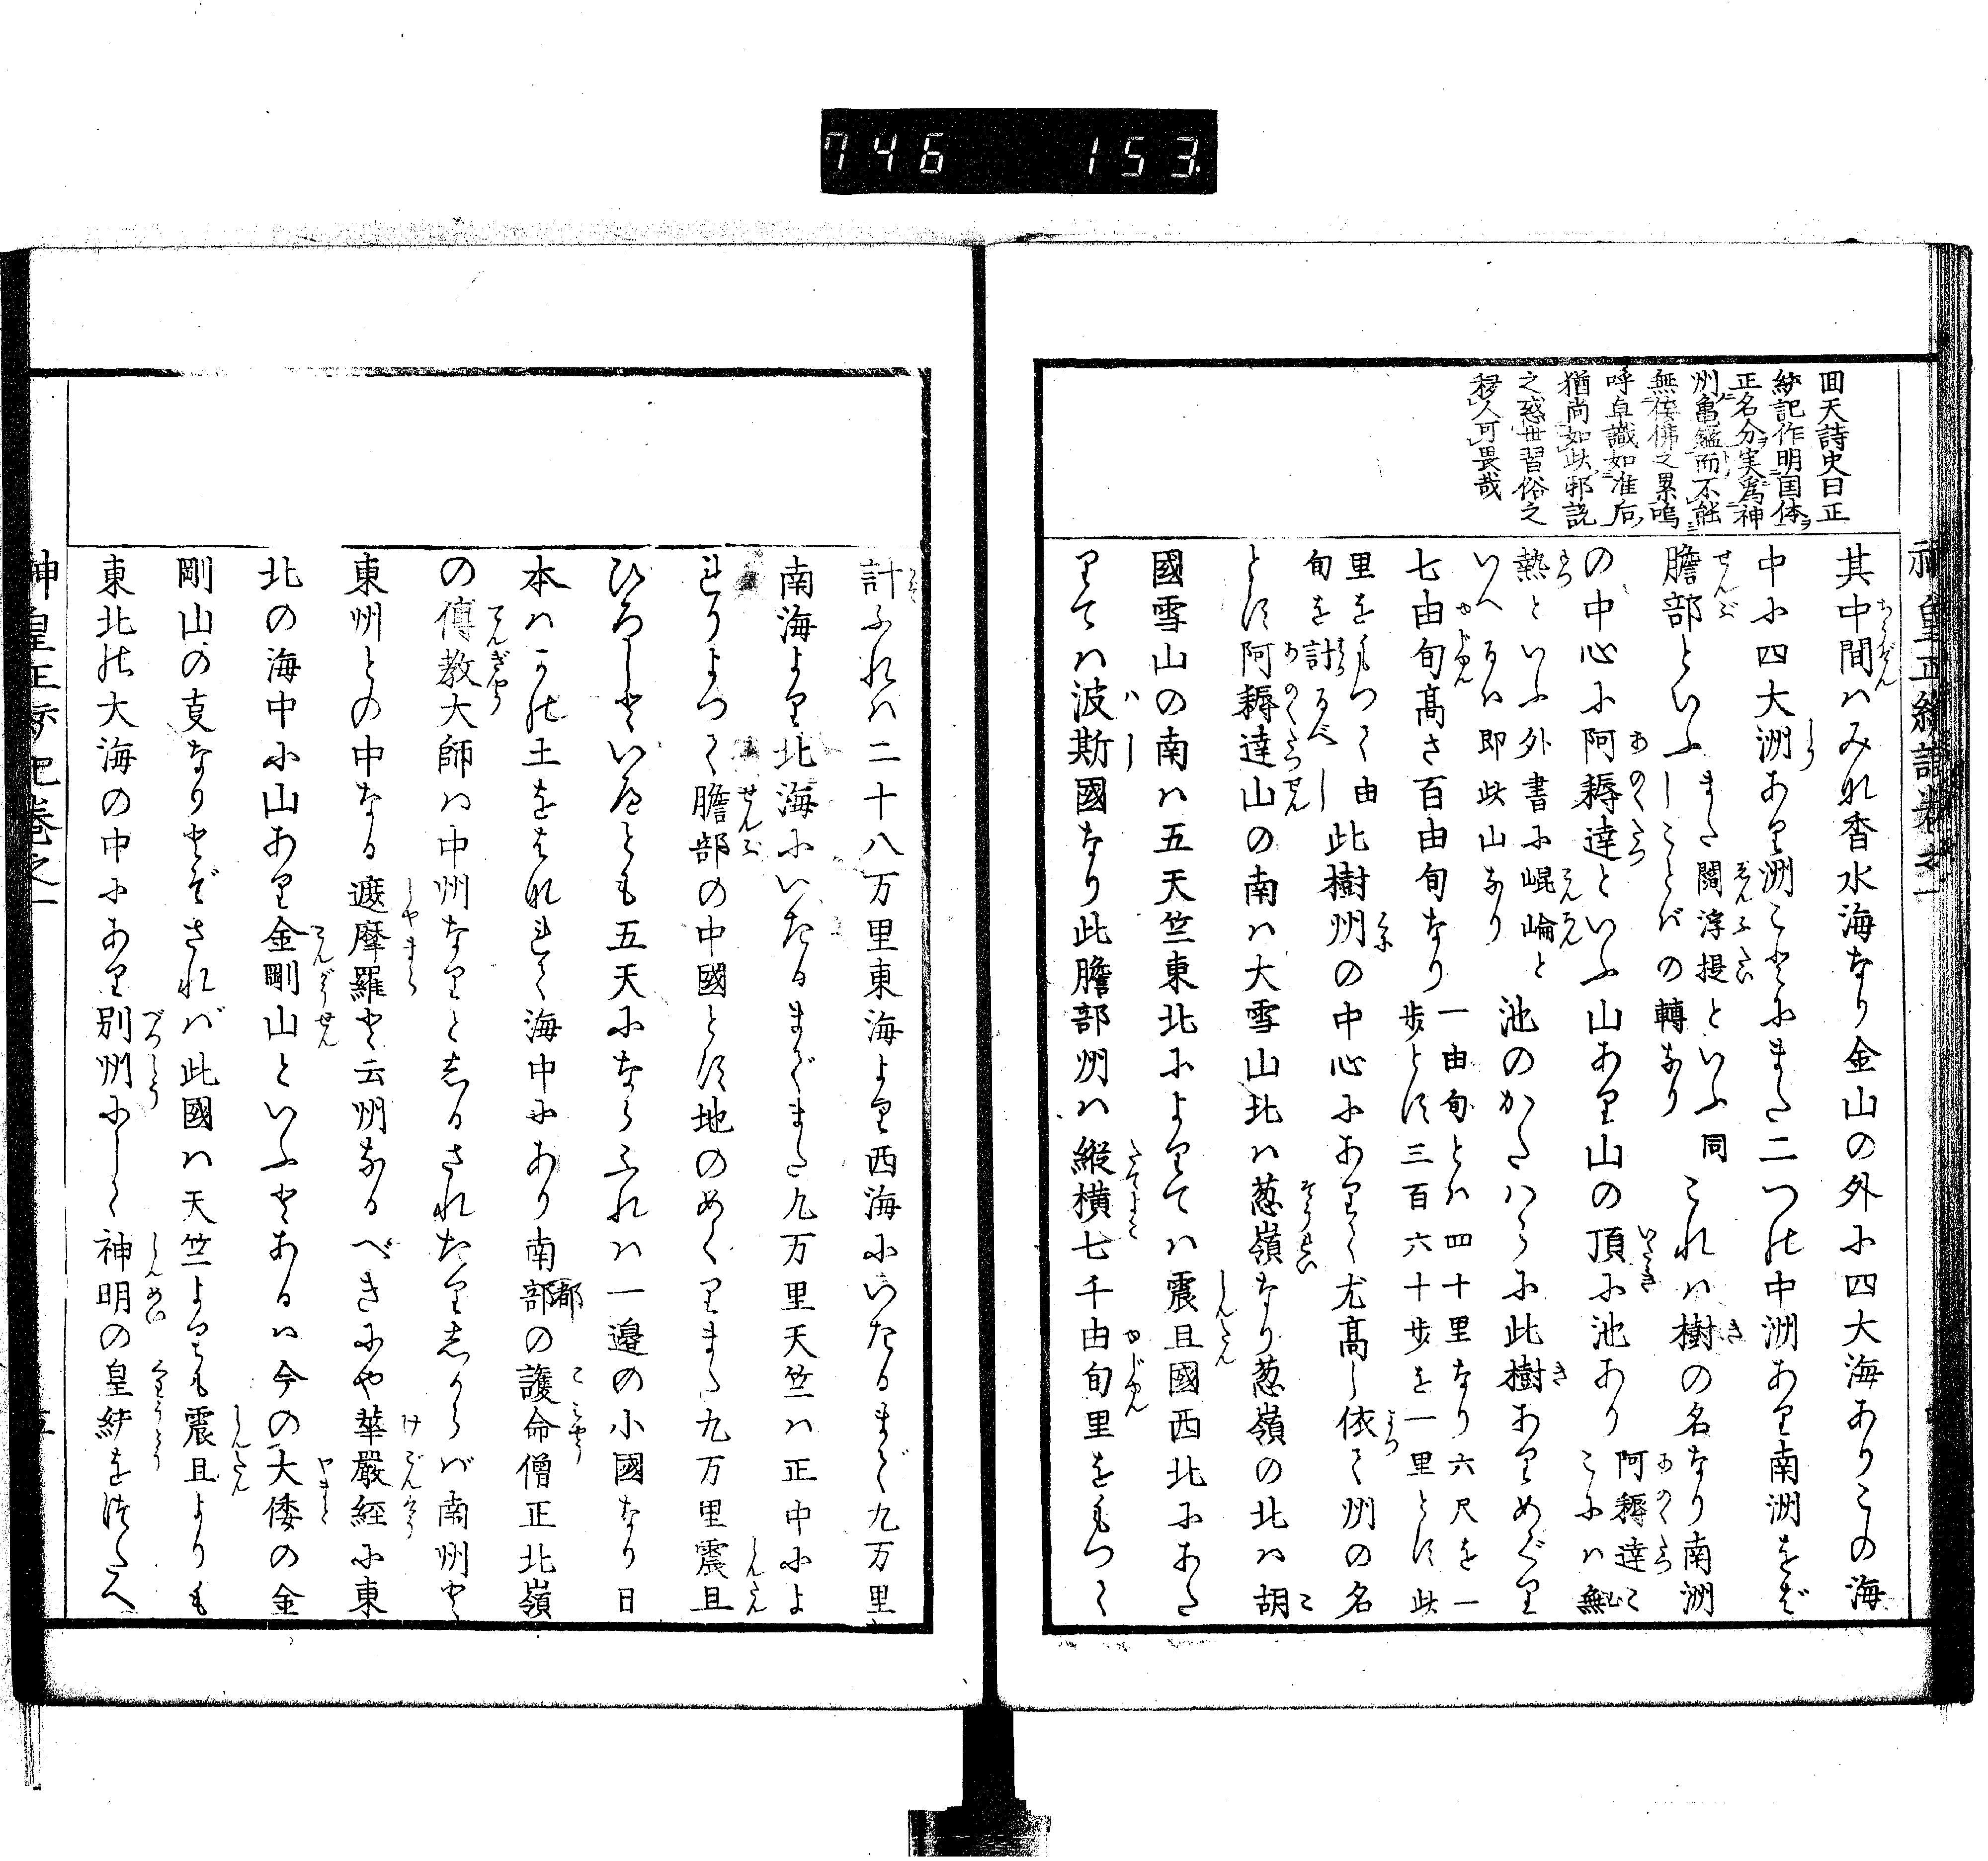 746 153.
神皇正統記巻之一
回天詩史曰正
統記作明国体
正名分実為神
州亀鑑而不能
無佞佛之累嗚
呼卓識如准后
猶尚如此邪説
之惑世習俗之
移人可畏哉
其中間ハみな香水海なり金山の外に四大海ありこの海
中に四大洲あり洲ことにまた二つの中洲あり南洲をば
贍部といふ
また閻浮提といふ同
しことばの轉なり
これハ樹の名なり南洲
の中心に阿耨達といふ山あり山の頂に池あり
阿耨達こ
こにハ無
熱といふ外書に崐崘と
いへるハ即此山なり
池のかたハらに此樹ありめぐり
七由旬髙さ百由旬なり
一由旬とハ四十里なり六尺を一
歩とす三百六十歩を一里とす此
里をもつて由
旬を計るべし
此樹州の中心にありて尤髙し依て州の名
とす阿耨達山の南ハ大雪山北ハ葱嶺なり葱嶺の北ハ胡
國雪山の南ハ五天竺東北によりてハ震旦國西北にあた
りてハ波斯國なり此贍部州ハ縦横七千由旬里をもつて
計ふれハ二十八万里東海より西海にいたるまで九万里
南海より北海にいたるまでまた九万里天竺ハ正中によ
れりよつて贍部の中國とす地のめくりまた九万里震旦
ひろしといへとも五天にならふれハ一邉の小國なり日
本ハかの土をはなれて海中にあり南部都の護命僧正北嶺
の傳教大師ハ中州なりとしるされたりしからバ南州と
東州との中なる遮摩羅と云州なるべきにや華嚴経に東
北の海中に山あり金剛山といふとあるハ今の大倭の金
剛山の㕝なりとぞされバ此國ハ天竺よりも震旦よりも
東北の大海の中にあり別州にして神明の皇統を傳たへ
神皇正統記巻之一
五